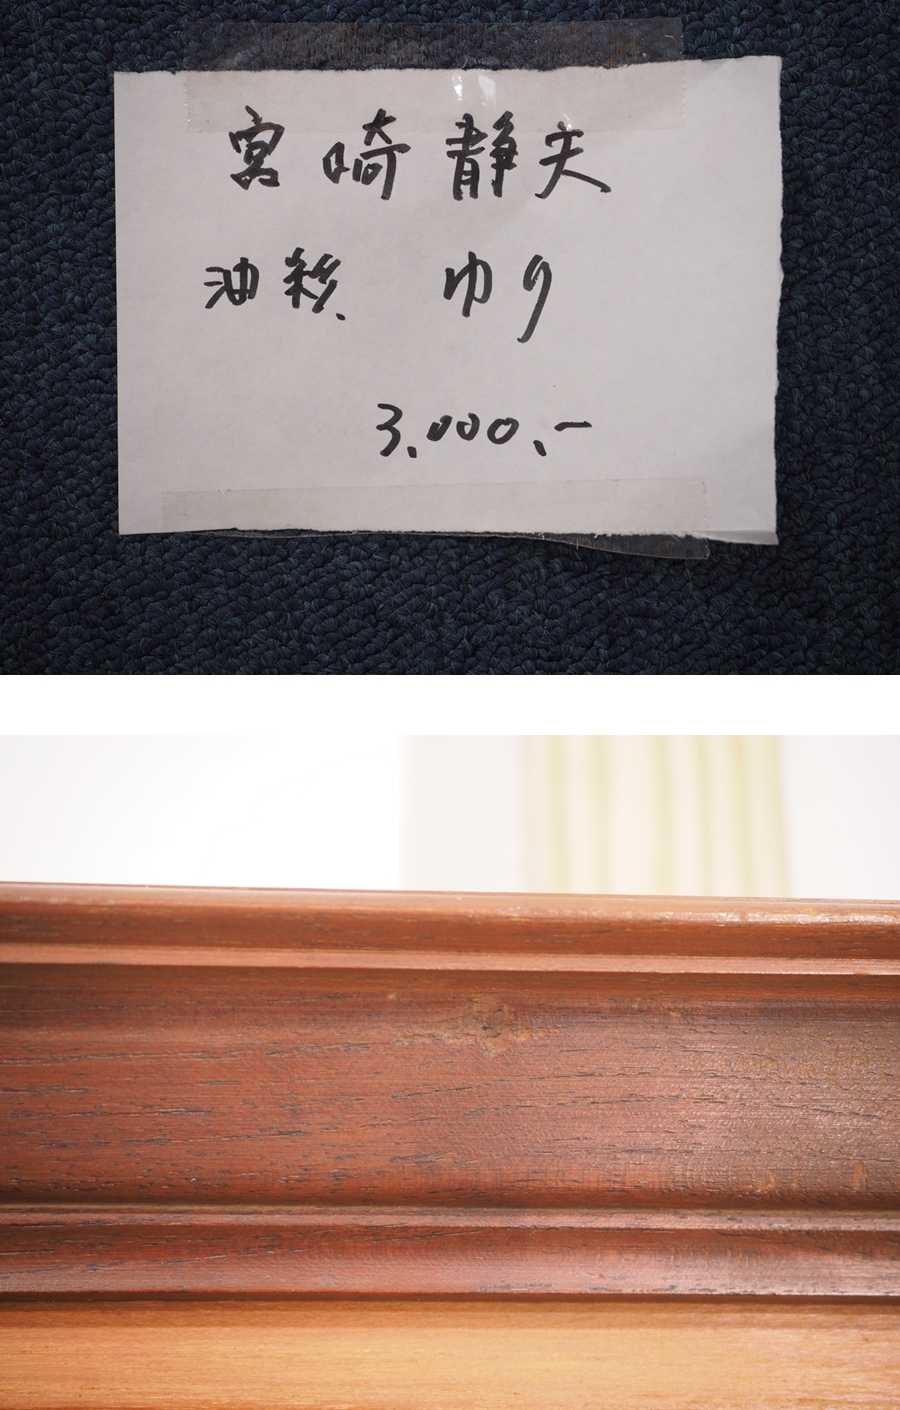 宮崎静夫
油彩、 ゆり
3,000,-